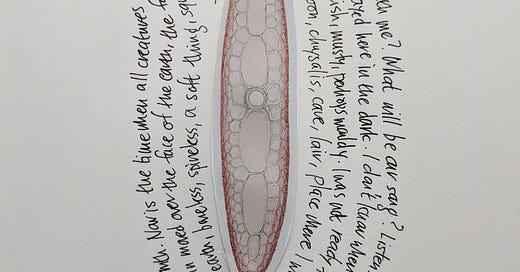 Now is the time when all creatures
moved over the face of the earth, the
earth, boneless, spineless, a soft thing,
me? What will be our song? Listen
here in the dark. I don't know when
musty, perhaps mouldy. I was not ready
chrysalis, cave, lair, place where I